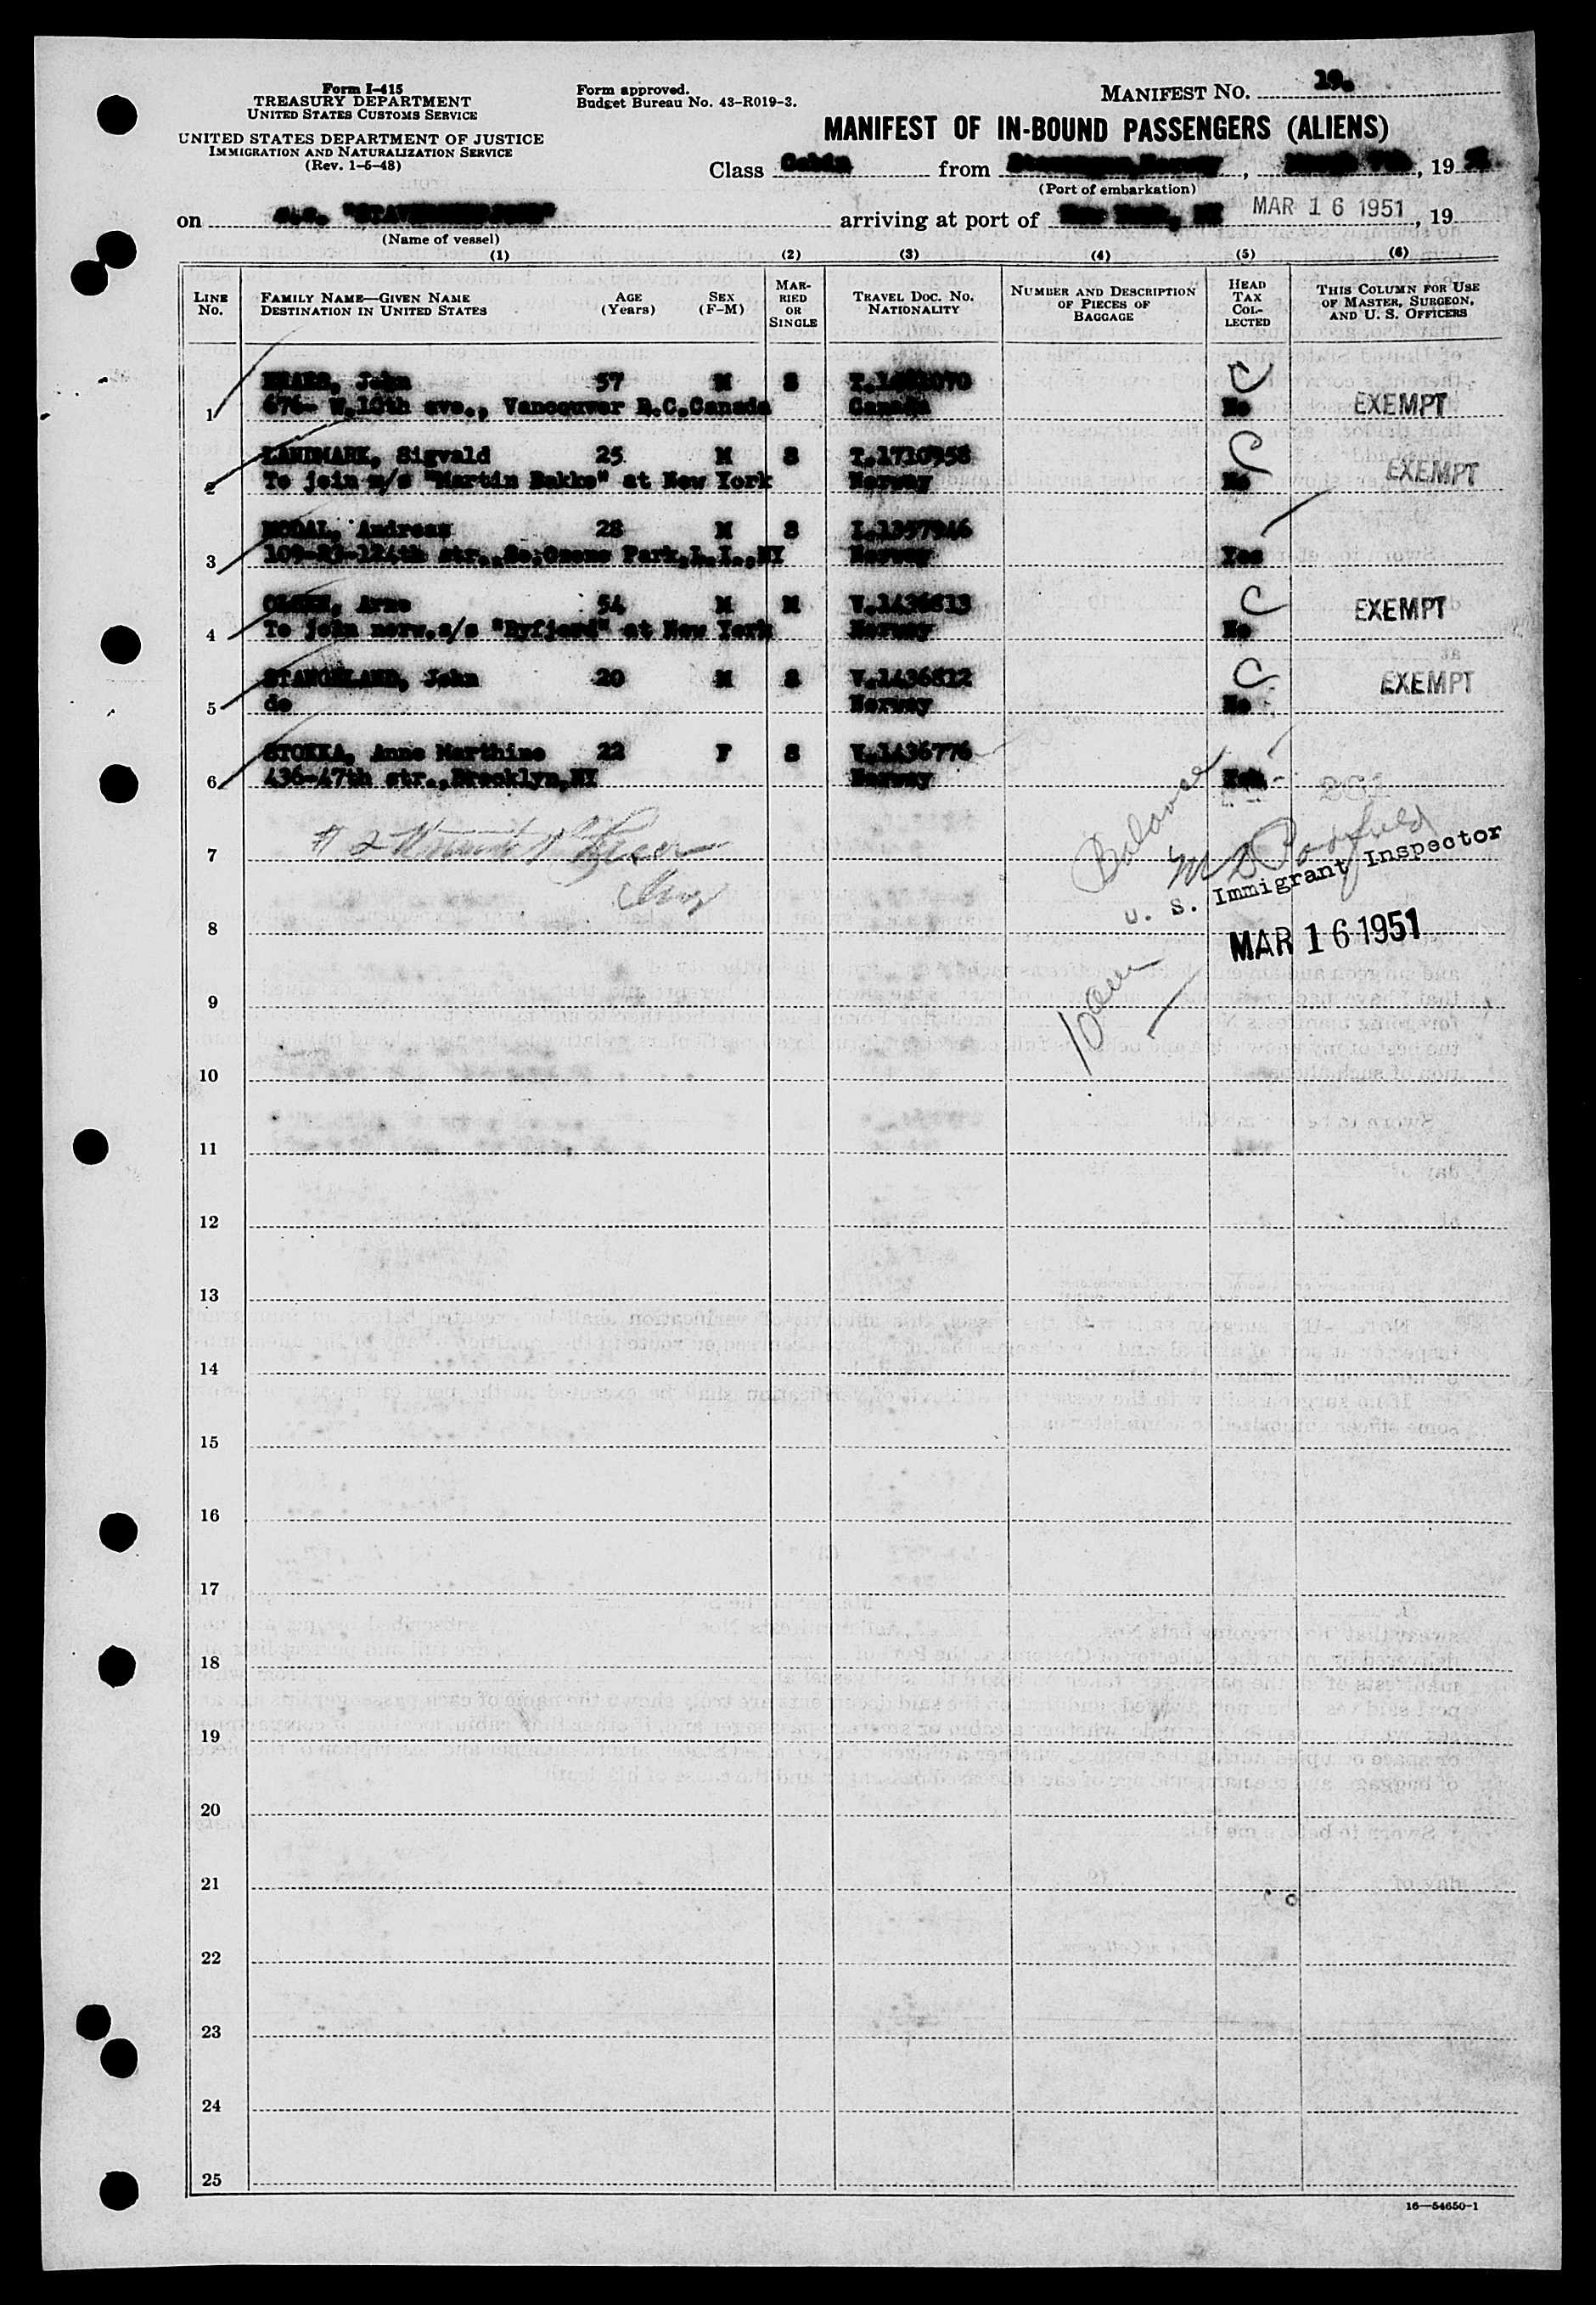 Form I-415
TREASURY DEPARTMENT
UNITED STATES CUSTOMS SERVICE
UNITED STATES DEPARTMENT OF JUSTICE
IMMIGRATION AND NATURALIZATION SERVICE
(Rev. 1-5-48)
Form approved.
Budget Bureau No. 43-R019-3.
MANIFEST NO. 19.
MANIFEST OF IN-BOUND PASSENGERS (ALIENS)
Class Cabin from Stavanger, Norway, March 7th, 19 51
(Port of embarkation)
on s.s. "STAVANGERFJORD" arriving at port of New York, NY MAR 16 1951, 19
(Name of vessel)
(1) (2) (3) (4) (5) (6)
LINE No. FAMILY NAME—GIVEN NAME DESTINATION IN UNITED STATES AGE (Years) SEX (F-M) MARRIED OR SINGLE TRAVEL DOC. NO. NATIONALITY NUMBER AND DESCRIPTION OF PIECES OF BAGGAGE HEAD TAX COLLECTED THIS COLUMN FOR USE OF MASTER, SURGEON, AND U. S. OFFICERS
John 57 M S C
1 676- W.10th ave., Vancouver B.C.Canada Canada No EXEMPT
LANDMARK, Sigvald 25 M S T.1710958 C
2 To join m/s "Martin Bakke" at New York Norway No EXEMPT
MODAL, Andreas 28 M S
3 124th str.,So.Ozone Park,L.I.,NY Norway Yes
OLSEN, Arne 54 M M V.1436813 C
4 To join norw.s/s "Ryfjord" at New York Norway No EXEMPT
STANGELAND, John 20 M S V.1436812 C
5 do Norway No EXEMPT
STOKKA, Anne Marthine 22 F S V.1436776
6 436-47th str.,Brooklyn,NY Norway
7
U. S. Immigrant Inspector
8
MAR 16 1951
9
10
11
12
13
14
15
16
17
18
19
20
21
22
23
24
25
16—54650-1